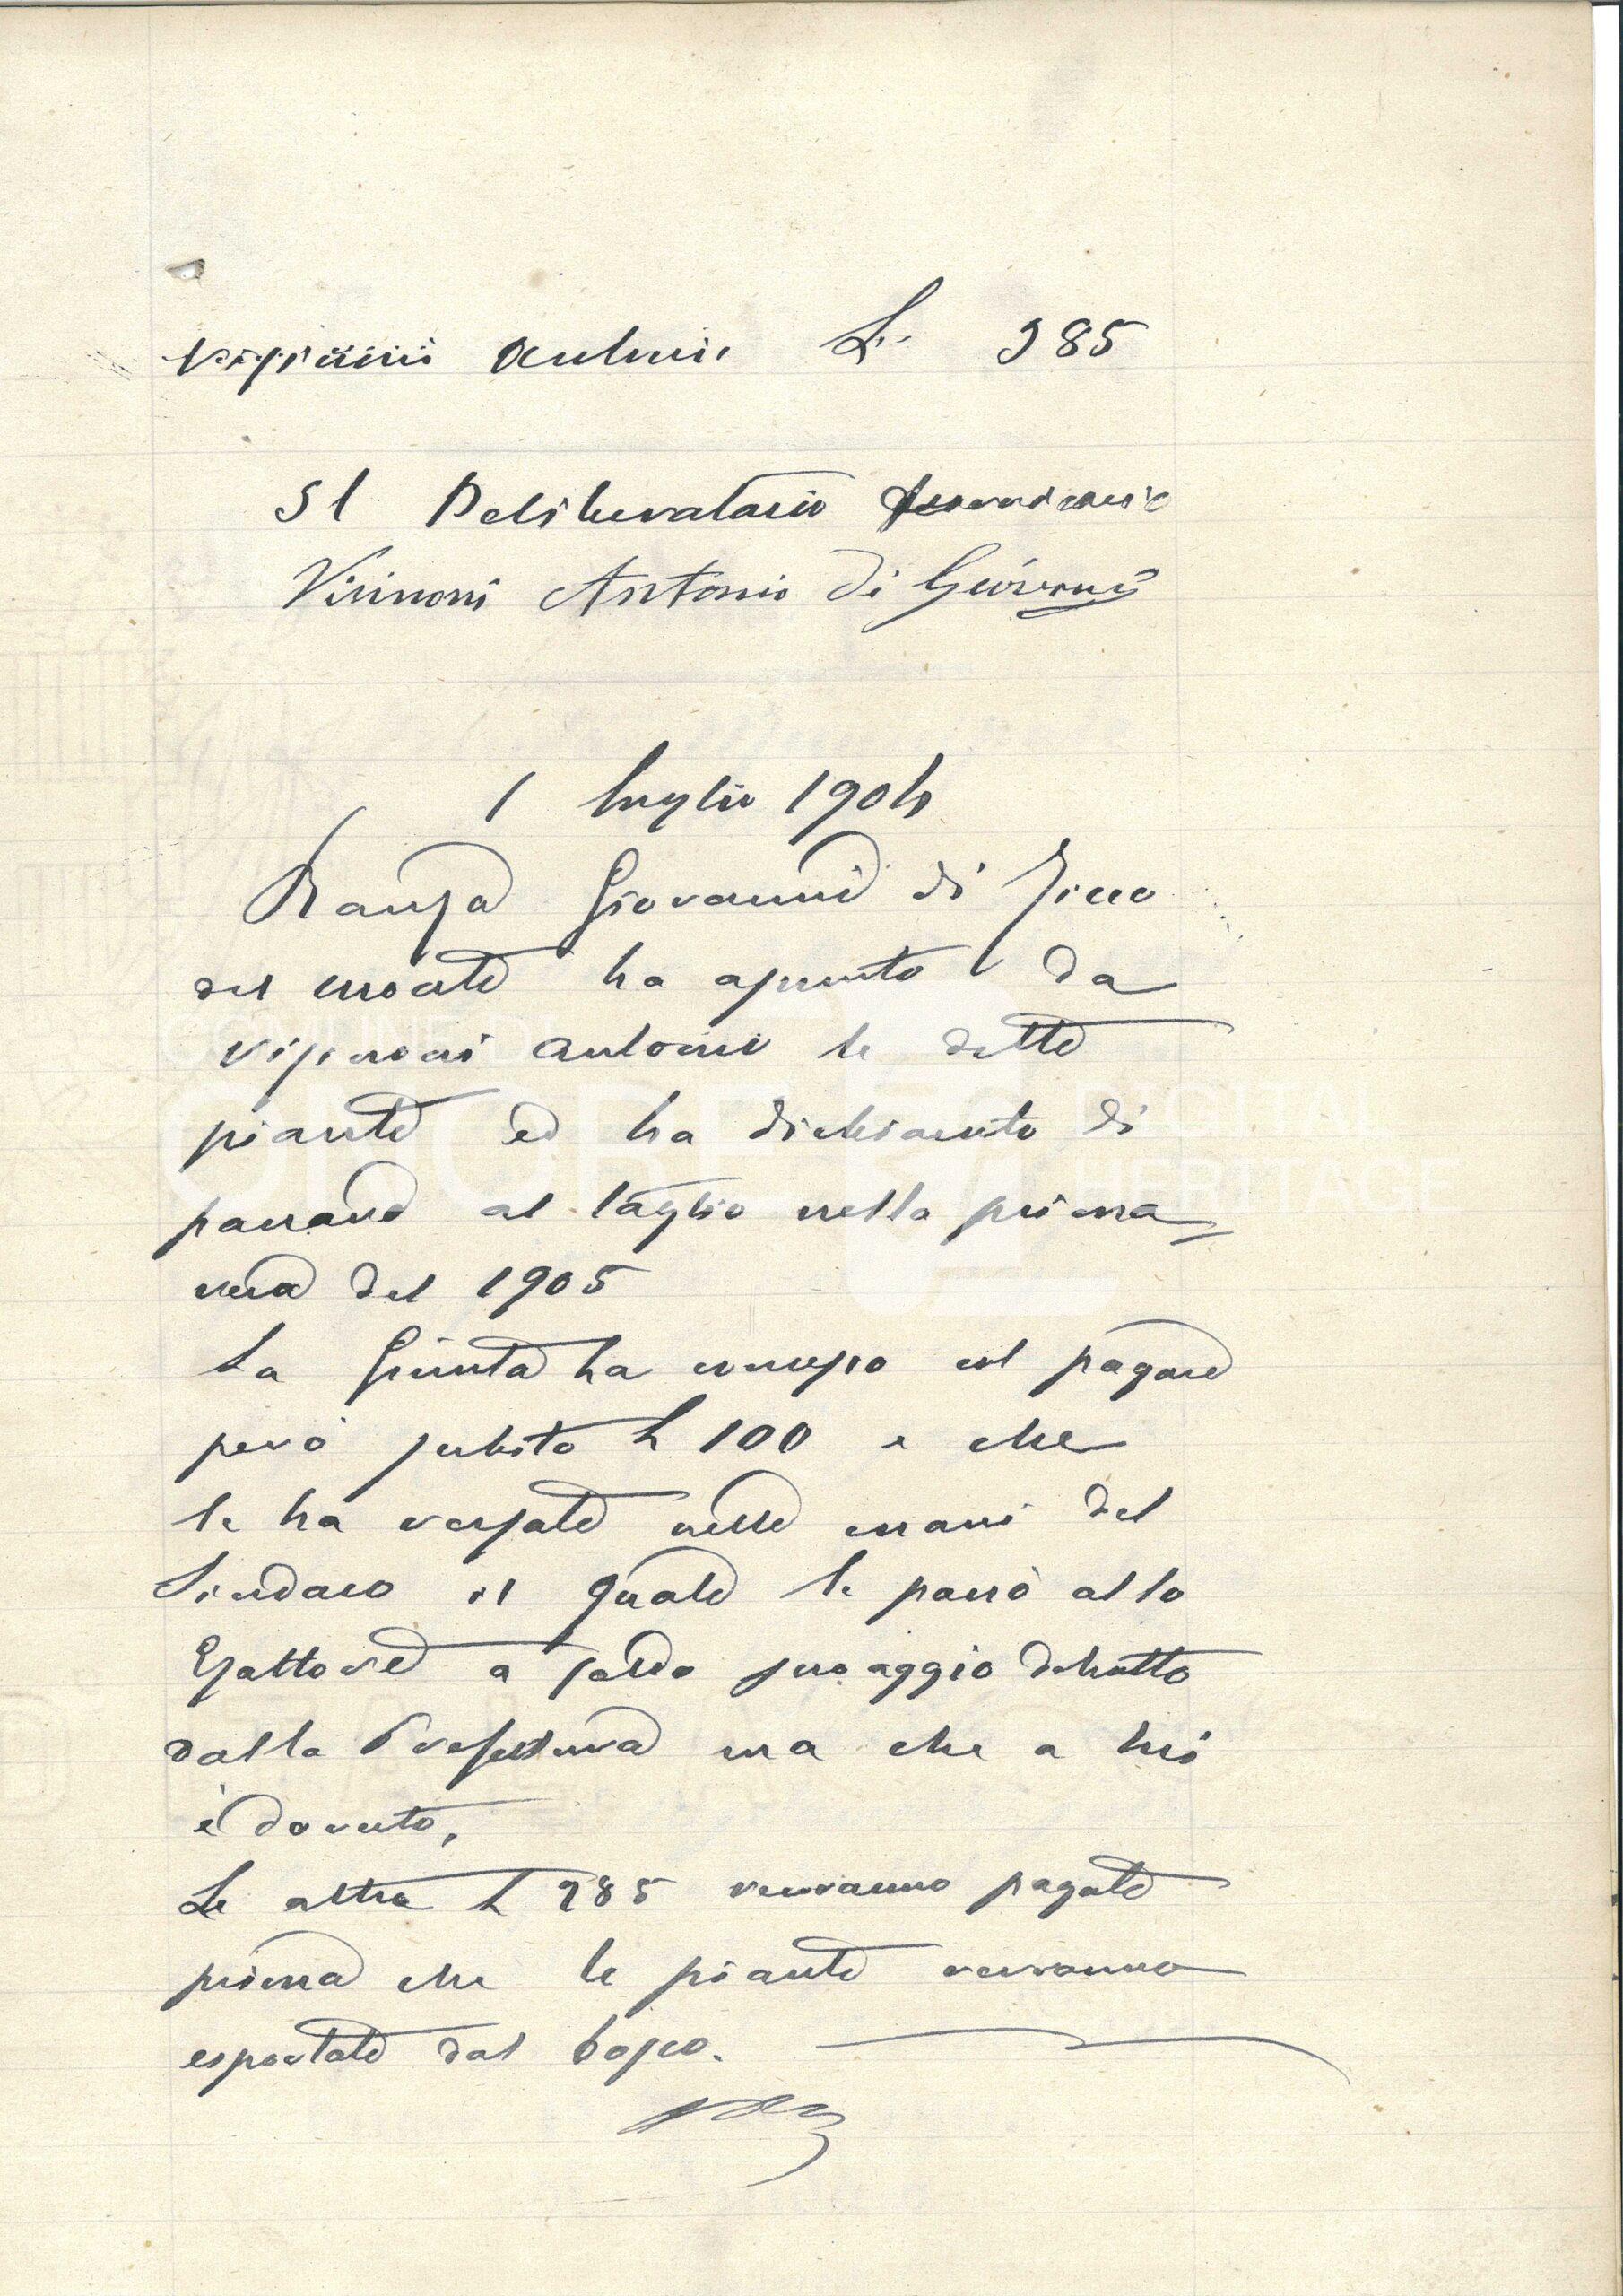 Antonio L. 385
Il Deliberatario
Visinoni Antonio di Giovanni
1 luglio 1904
Ranza Giovanni di
ha assunto da
Visinoni Antonio le dette
piante ed ha dichiarato di
passare al taglio nella prima
vera del 1905
La Giunta ha concesso col pagare
però subito L 100 e che
le ha versate nelle mani del
Sindaco il quale le passò allo
Esattore a saldo suo aggio dibatto
dalla Prefettura ma che a lui
è dovuto,
Le altre L 285 verranno pagate
prima che le piante verranno
esportate dal bosco.
COMUNE DI
ONORE
DIGITAL
HERITAGE